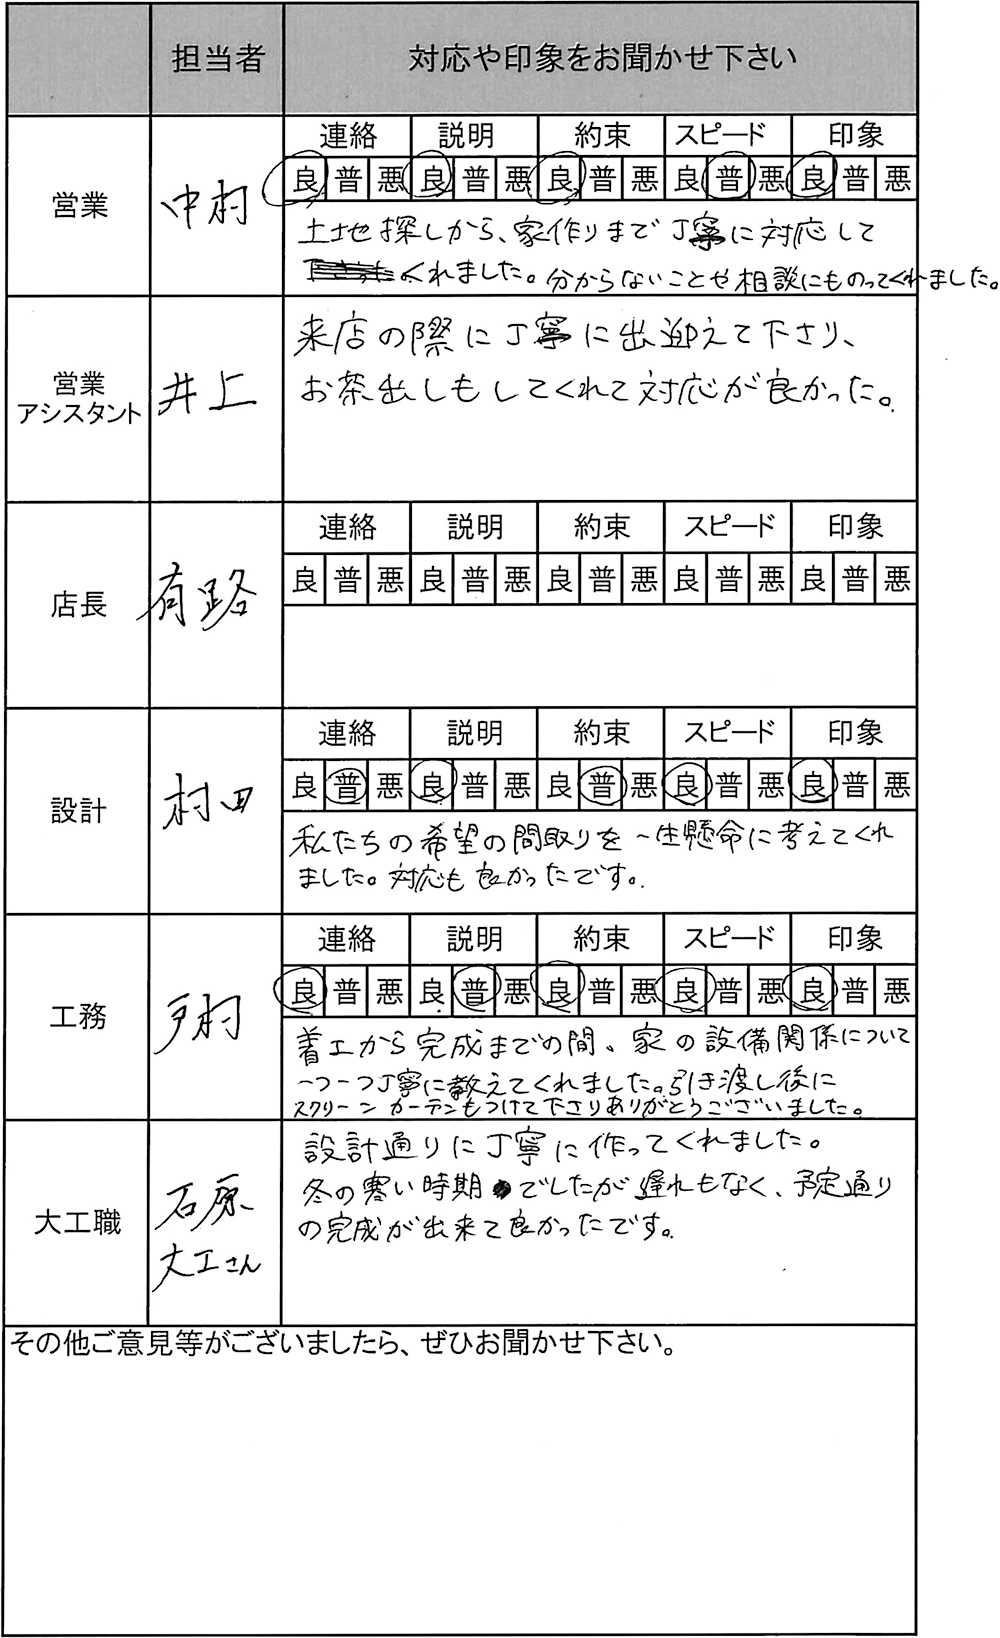 担当者 対応や印象をお聞かせ下さい
連絡 説明 約束 スピード 印象
良 普 悪 良 普 悪 良 普 悪 良 普 悪 良 普 悪
営業 中村
土地探しから、家作りまで丁寧に対応して
くれました。分からないことや相談にものってくれました。
来店の際に丁寧に出迎えて下さり、
営業
アシスタント 井上 お茶出しもしてくれて対応が良かった。
連絡 説明 約束 スピード 印象
良 普 悪 良 普 悪 良 普 悪 良 普 悪 良 普 悪
店長 有路
連絡 説明 約束 スピード 印象
良 普 悪 良 普 悪 良 普 悪 良 普 悪 良 普 悪
設計 村田
私たちの希望の間取りを一生懸命に考えてくれ
ました。対応も良かったです。
連絡 説明 約束 スピード 印象
良 普 悪 良 普 悪 良 普 悪 良 普 悪 良 普 悪
工務 戸村
着工から完成までの間、家の設備関係について
一つ一つ丁寧に教えてくれました。引き渡し後に
スクリーンカーテンもつけて下さりありがとうございました。
設計通りに丁寧に作ってくれました。
冬の寒い時期でしたが遅れもなく、予定通り
大工職 石原
大工さん
の完成が出来て良かったです。
その他ご意見等がございましたら、ぜひお聞かせ下さい。